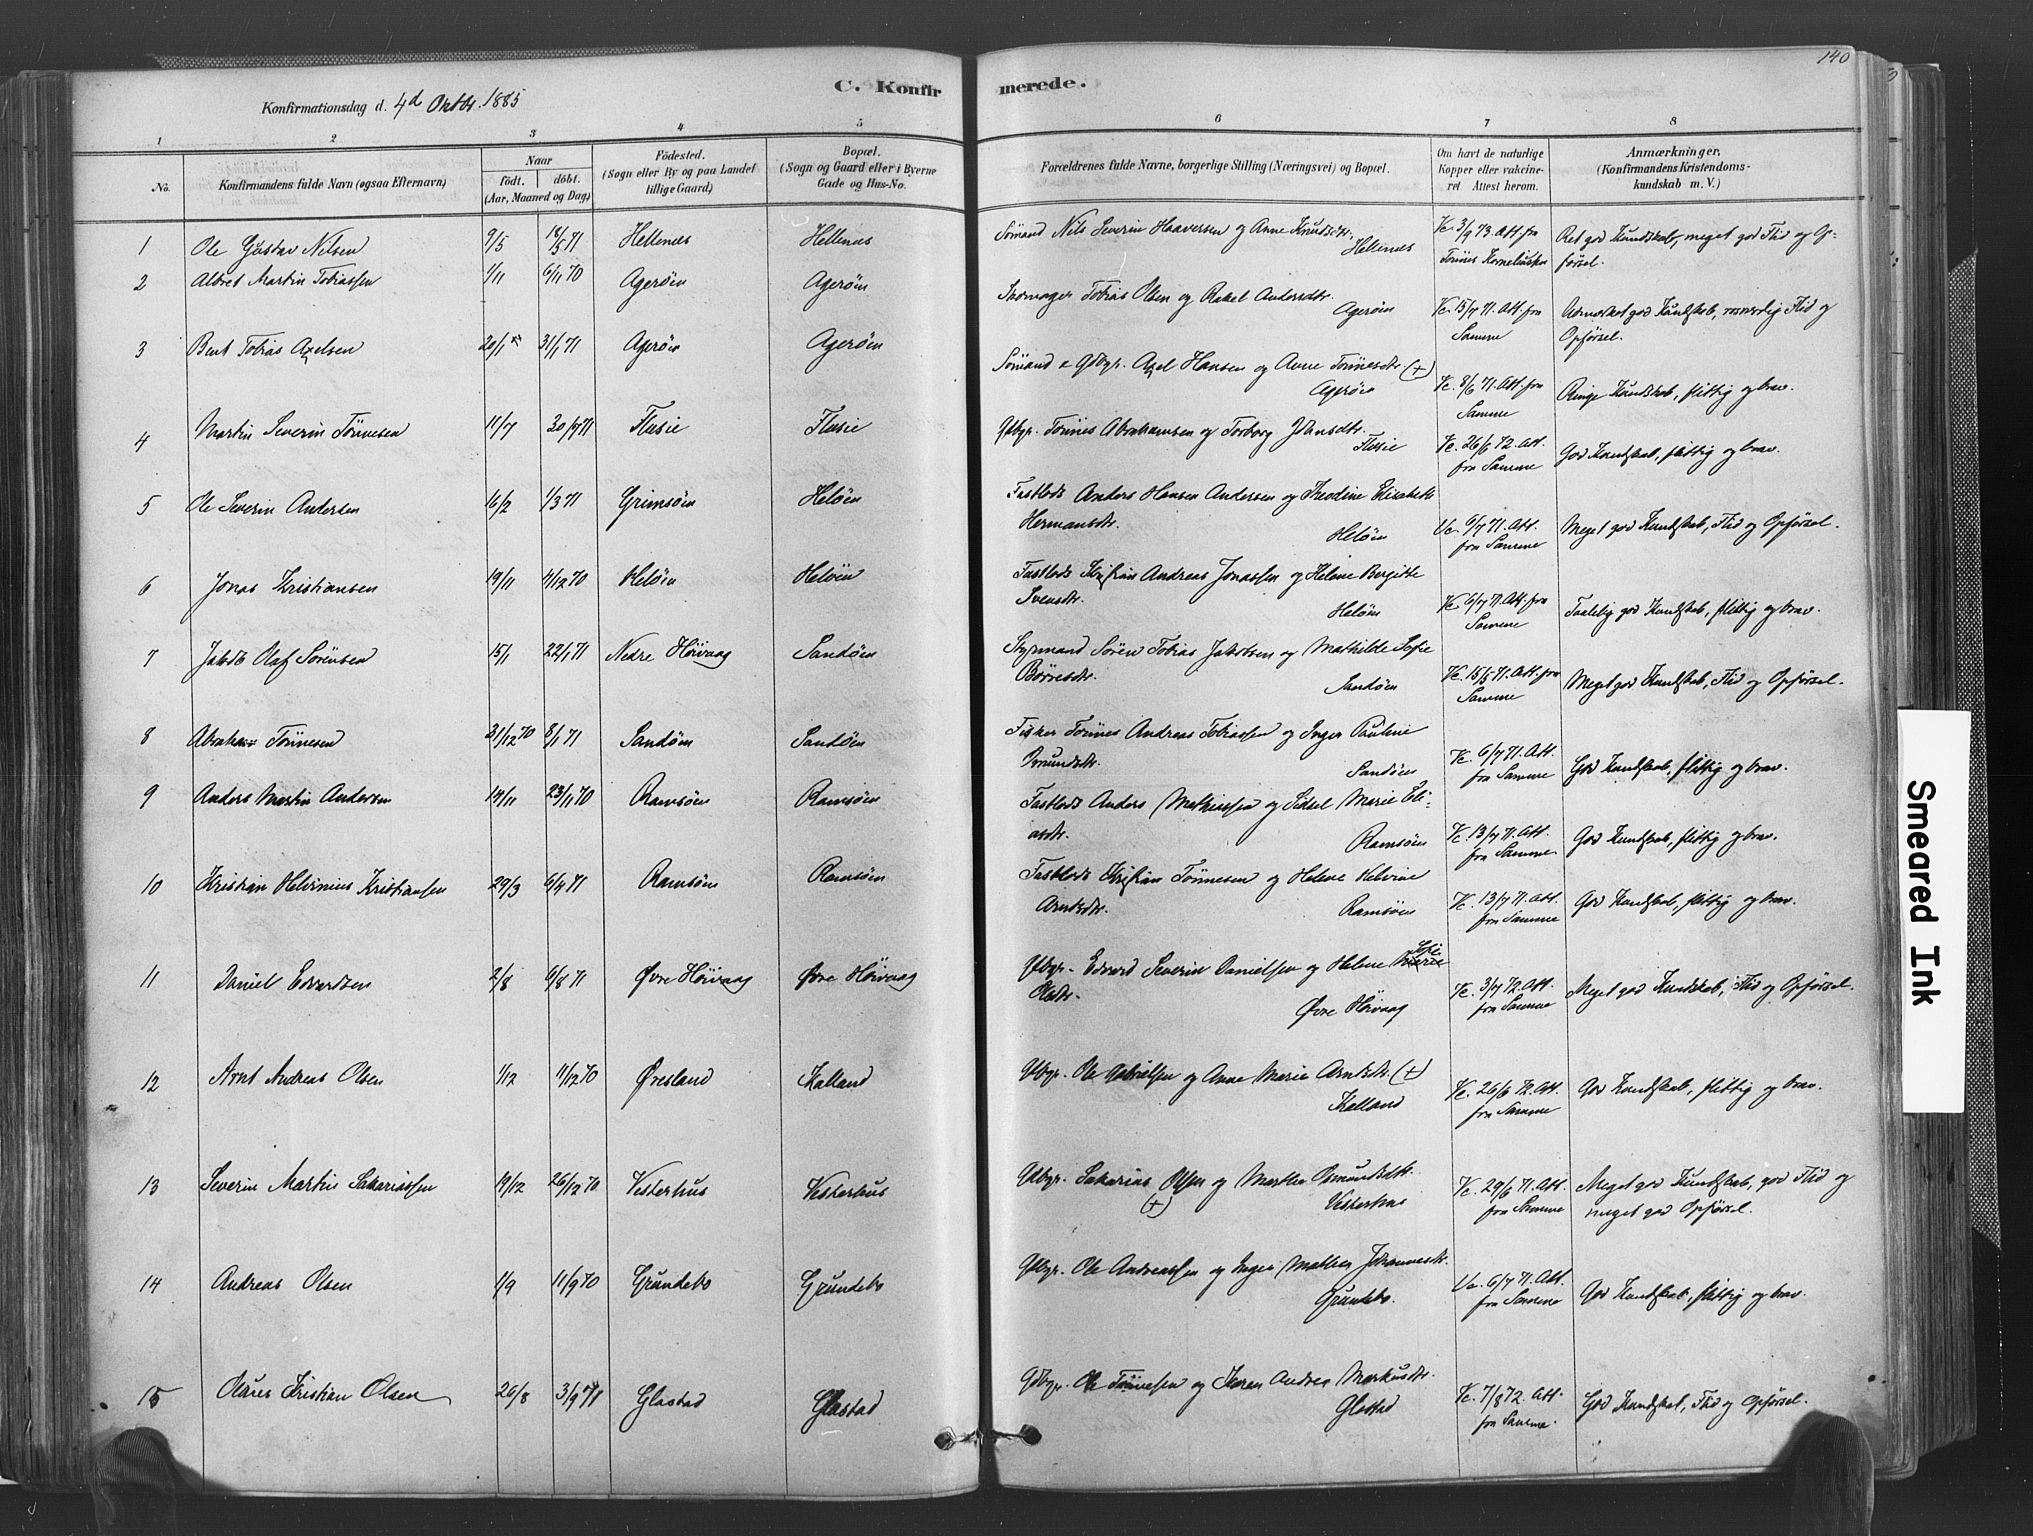 140
C. Konfir
merede.
Konfirmationsdag d. 4d Oktbr. 1885
1 2 3 4 5 6 7 8
No.
Konfirmandens fulde Navn (ogsaa Efternavn)
Naar
født. døbt.
(Aar, Maaned og Dag)
Fødested.
(Sogn eller By og paa Landet
tillige Gaard)
Bopæl.
(Sogn og Gaard eller i Byerne
Gade og Hus-No.
Forældrenes fulde Navne, borgerlige Stilling (Næringsvei) og Bopæl.
Om havt de naturlige
Kopper eller vakcine-
ret Attest herom.
Anmærkninger.
(Konfirmandens Kristendoms-
kundskab m. V.)
1 Ole Gustav Nilsen 9/5 18/5 71 Hellenæs Hellenæs Sømand Nils Severin Haaversen og Anne Knudsdtr. Hellenæs Vc. 3/9 73. Att. fra
Tønnes Korneliusen
Ret god Kundskab, meget god Flid og Op-
førsel.
2 Albret Martin Tobiassen 1/11 6/11 70 Agerøen Agerøen Skomager Tobias Olsen og Rakel Andersdtr. Agerøen Vc. 15/7 71. Att. fra
Samme
Udmærket god Kundskab, Flid og
Opførsel.
3 Bent Tobias Axelsen 20/1 31/1 71 Agerøen Agerøen Sømand & Gdbgr. Axel Hansen og Anne Tønnesdtr. (+)
Agerøen
Vc. 8/6 71. Att. fra
Samme
Ringe Kundskab, flittig og brav.
4 Martin Severin Tønnesen 11/7 30/7 71 Flusie Flusie Gdbgr. Tønnes Abrahamsen og Torborg Johnsdtr.
Flusie
Vc. 26/6 72. Att.
fra Samme
God Kundskab, flittig og brav.
5 Ole Severin Andersen 16/2 1/3 71 Grimsøen Heløen Fastlods Anders Hansen Andersen og Theodine Elisabeth
Hermansdtr. Heløen
Vc. 6/7 71. Att.
fra Samme
Meget god Kundskab, Flid og Opførsel.
6 Jonas Kristiansen 19/11 4/12 70 Heløen Heløen Fastlods Kristian Andreas Jonassen og Helene Bergitte
Svensdtr. Heløen
Vc. 6/7 71. Att. fra
Samme
Taalelig god Kundskab, flittig og brav.
7 Jakob Olaf Sørensen 15/1 22/1 71 Nedre Høivaag Sandøen Styrmand Søren Tobias Jakobsen og Mathilde Sofie
Børresdtr. Sandøen
Vc. 15/5 71. Att. fra
Samme
Meget god Kundskab, Flid og Opførsel.
8 Abraham Tønnesen 31/12 70 8/1 71 Sandøen Sandøen Fisker Tønnes Andreas Tobiassen og Inger Pauline
Omundsdtr. Sandøen
Vc. 6/7 71. Att.
fra Samme
God Kundskab, flittig og brav.
9 Anders Martin Andersen 19/11 23/11 70 Ramsøen Ramsøen Fastlods Anders Mathiassen og Sidsel Marie Eli-
asdtr. Ramsøen
Vc. 13/7 71. Att.
fra Samme
God Kundskab, flittig og brav.
10 Kristian Helvinius Kristiansen 29/3 6/4 71 Ramsøen Ramsøen Fastlods Kristian Tønnesen og Helene Helvine
Arntsdtr. Ramsøen
Vc. 13/7 71. Att.
fra Samme
God Kundskab, flittig og brav.
11 Daniel Edvardsen 2/8 6/8 71 Øvre Høivaag Øvre Høivaag Gdbgr. Edvard Severin Danielsen og Helene Sofie
Olsdtr. Øvre Høivaag
Vc. 3/7 72. Att.
fra Samme
Meget god Kundskab, Flid og Opførsel.
12 Arnt Andreas Olsen 1/12 11/12 70 Øresland Kalland Gdbgr. Ole Gabrielsen og Anne Marie Arntsdtr. (+)
Kalland
Vc. 26/6 72. Att.
fra Samme
God Kundskab, flittig og brav.
13 Severin Martin Sakariassen 19/12 26/12 70 Vesterhus Vesterhus Gdbgr. Sakarias Olsen og Marthe Osmundsdtr.
(+) Vesterhus
Vc. 29/6 71. Att.
fra Samme
Meget god Kundskab, god Flid og
meget god Opførsel.
14 Andreas Olsen 1/9 11/9 70 Grundebo Grundebo Gdbgr. Ole Andreassen og Inger Malene Johannesdtr.
Grundebo.
Vc. 6/7 71. Att.
fra Samme
God Kundskab, flittig og brav.
15 Olaus Kristian Olsen 26/8 3/9 71 Glastad Glastad Gdbgr. Ole Tønnesen og Karen Andrea Markusdtr.
Glastad
Vc. 7/8 72. Att.
fra Samme.
God Kundskab, Flid og Opførsel.
Smeared Ink